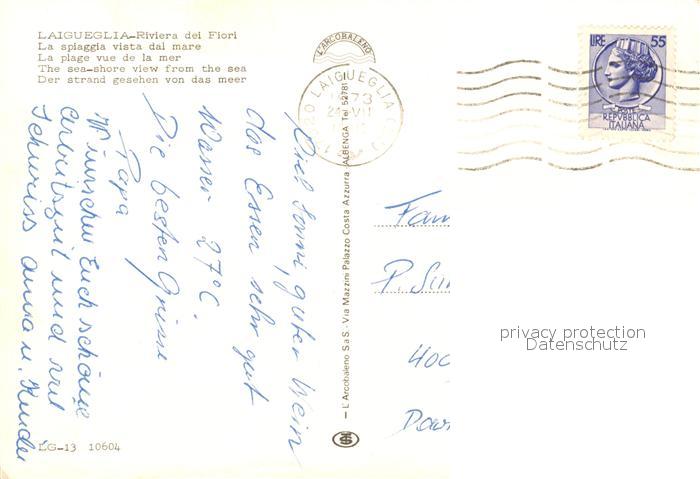 LAIGUEGLIA-Riviera dei Fiori
La spiaggia vista dal mare
La plage vue de la mer
The sea-shore view from the sea
Der strand gesehen von das meer
L'ARCOBALENO
LAIGUEGLIA
73
LIRE 55
POSTE
REPVBBLICA
ITALIANA
Viel Sonni, guter Wein
das Essen sehr gut
Wasser 27°C.
Die besten Grüsse
Papa
Wünschen Euch schöne
Arbeitszeit und viel
Schwiss anna u. Kinder
– L'Arcobaleno S a S - Via Mazzini Palazzo Costa Azzurra ALBENGA Tel 52781
Fam
P. Sim
400
privacy protection
Datenschutz
LG-13 10604